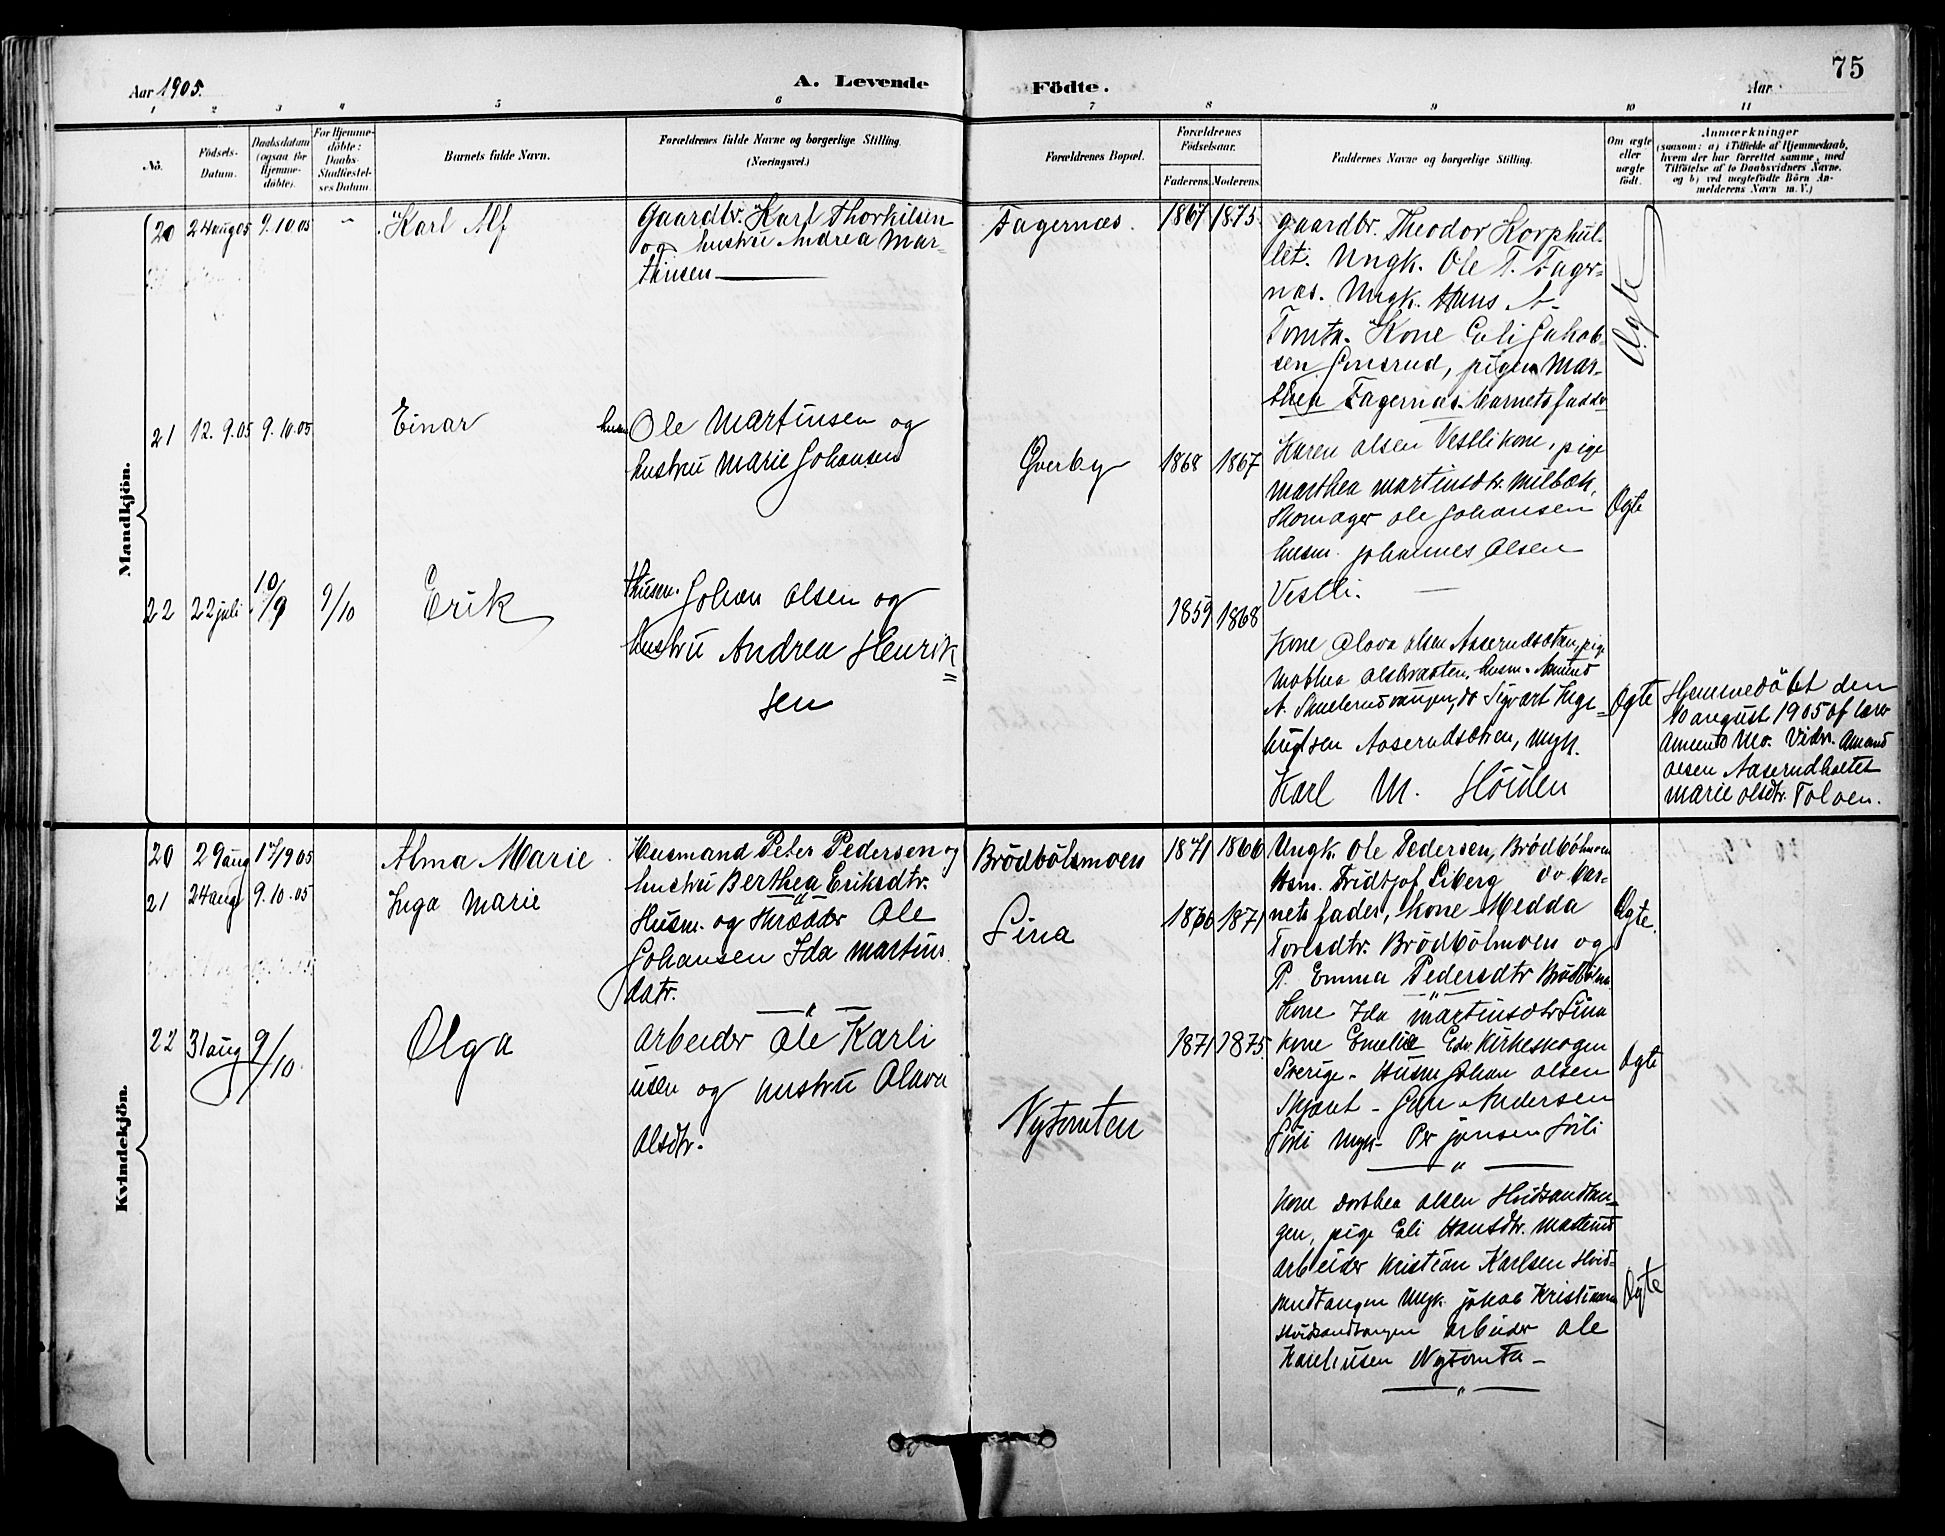 75
Aar 1905.
A. Levende
Födte.
Aar
1 2 3 4 5 6 7 8 9 10 11
No.
Födsels-
Datum.
Daabsdatum
(ogsaa for
Hjemme-
döbte).
For Hjemme-
döbte:
Daabs-
Stadfæstel-
ses Datum.
Barnets fulde Navn.
Forældrenes fulde Navne og borgerlige Stilling.
(Næringsvei.)
Forældrenes Bopæl.
Forældrenes
Födselsaar.
Faderens.
Moderens.
Faddernes Navne og borgerlige Stilling.
Om ægte
eller
uægte
födt.
Anmærkninger
(saasom: a) i Tilfælde af Hjemmedaab,
hvem der har forrettet samme, med
Tilföielse af to Daabsvidners Navne,
og b) ved uægtefödte Börn An-
melderens Navn m. V.)
Mandkjön.
20 24 aug 05 9.10 05 - Karl Alf
Gaardbr. Karl Thorkilsen
og hustru Andrea Mar-
thinsen
Fagernæs. 1867 1875.
Gaardbr. Theodor Korphul-
let. Ungk. Ole T. Fager-
næs. Ungk. Hans A-
Tomta. Kone Eli Jakob-
sen, pigen Mar-
Fagernæs. Barnets fader
Ægte
21 12. 9.05 9.10.05 Einar
husm Ole Martinsen og
hustru Marie Johansen
Gverby 1868 1867
Karen Olsen Vestli kone, pige
Marthea Martinsdtr. Milbæk,
Skomager Ole Johansen
husm. Johannes Olsen
Vestli.
Ægte
22 22 juli 10/9 9/10 Erik
Husm. Johan Olsen og
hustru Andrea Henrik
sen
1859 1868
Kone Olava Olsen Aaserudsætren, pige
husm. Amund
A. do Sigvart Inge-
Aaserudsætren, Ungk.
Karl M. Höiden
Ægte
Hjemmedöbt den
10 august 1905 af lærer
Amund Mo. Vidn. Amund
Olsen Aaserudholtet
Marie Olsdtr. Tolven.
Kvindekjön.
20 29 aug 17/9 05 Alma Marie
Husmand Peter Pedersen og
hustru Berthea Eriksdtr.
Brödbölsmoen 1871 1866
Ungk. Ole Pedersen, Brödbölsmoen
Husm. Fridtjof Liberg do Bar-
nets fader, Kone Hedda
Toresdtr. Brödbölmoen og
P. Emma Pedersdtr Brödbölm
Ægte.
21 24 aug 9.10.05 Inga Marie
Husm. og Skrædder Ole
Johansen Ida Martins
datr.
Lina 1866 1871
Kone Ida Martinsdtr Lina
Kone Emelie Edv. Kirkeskogen
Sverige - Husm Johan Olsen
Andersen
Ungk - Per Jonsen Sörli
Ægte
22 31 aug 9/10 Olga
Arbeider Ole Karli
usen og hustru Olava
Olsdtr.
Nytomten 1871 1875
Kone Dorthea Olsen Hvidsandtan-
gen, pige Eli Hansdtr. Masterud
Arbeider Kristian Karlsen Hvid-
sandtangen Ungk. Jakob Kristiansen
Hvidsandtangen Arbeider Ole
Karliusen Nytomta -
Ægte